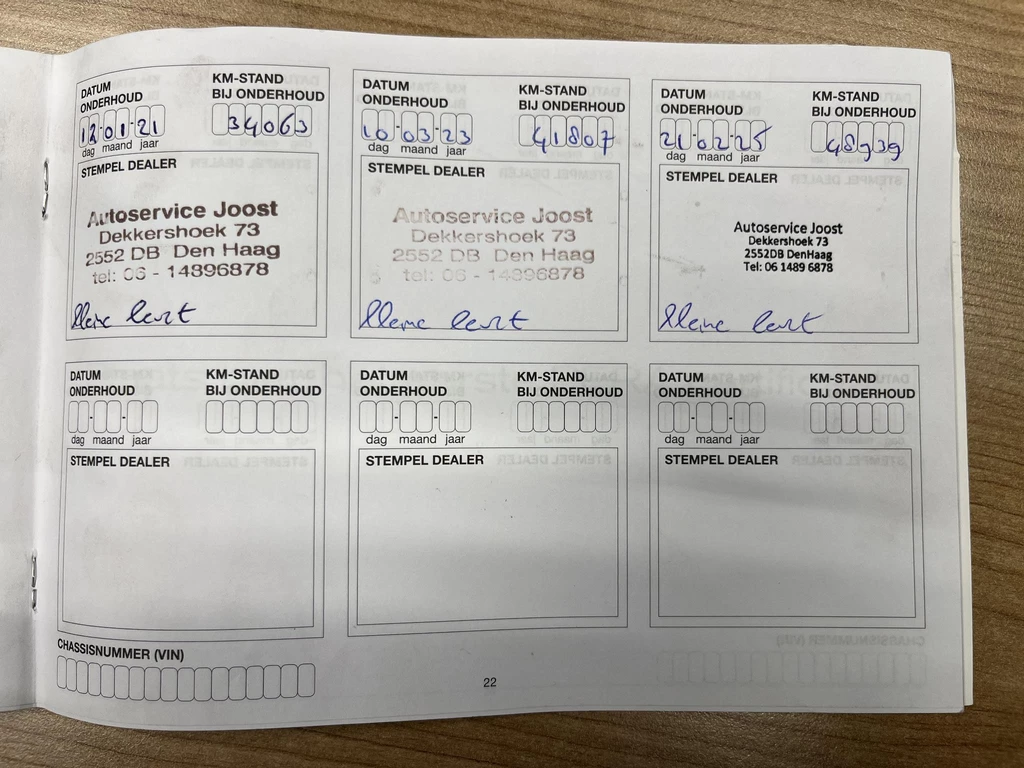 DATUM ONDERHOUD
KM-STAND BIJ ONDERHOUD
12-01-21
34063
dag maand jaar
STEMPEL DEALER
Autoservice Joost
Dekkershoek 73
2552 DB Den Haag
tel: 06 - 14896878
kleine beurt
DATUM ONDERHOUD
KM-STAND BIJ ONDERHOUD
10-03-23
41807
dag maand jaar
STEMPEL DEALER
Autoservice Joost
Dekkershoek 73
2552 DB Den Haag
tel: 06 - 14896878
kleine beurt
DATUM ONDERHOUD
KM-STAND BIJ ONDERHOUD
21-02-25
48939
dag maand jaar
STEMPEL DEALER
Autoservice Joost
Dekkershoek 73
2552DB DenHaag
Tel: 06 1489 6878
kleine beurt
DATUM ONDERHOUD
KM-STAND BIJ ONDERHOUD
dag maand jaar
STEMPEL DEALER
DATUM ONDERHOUD
KM-STAND BIJ ONDERHOUD
dag maand jaar
STEMPEL DEALER
DATUM ONDERHOUD
KM-STAND BIJ ONDERHOUD
dag maand jaar
STEMPEL DEALER
CHASSISNUMMER (VIN)
22